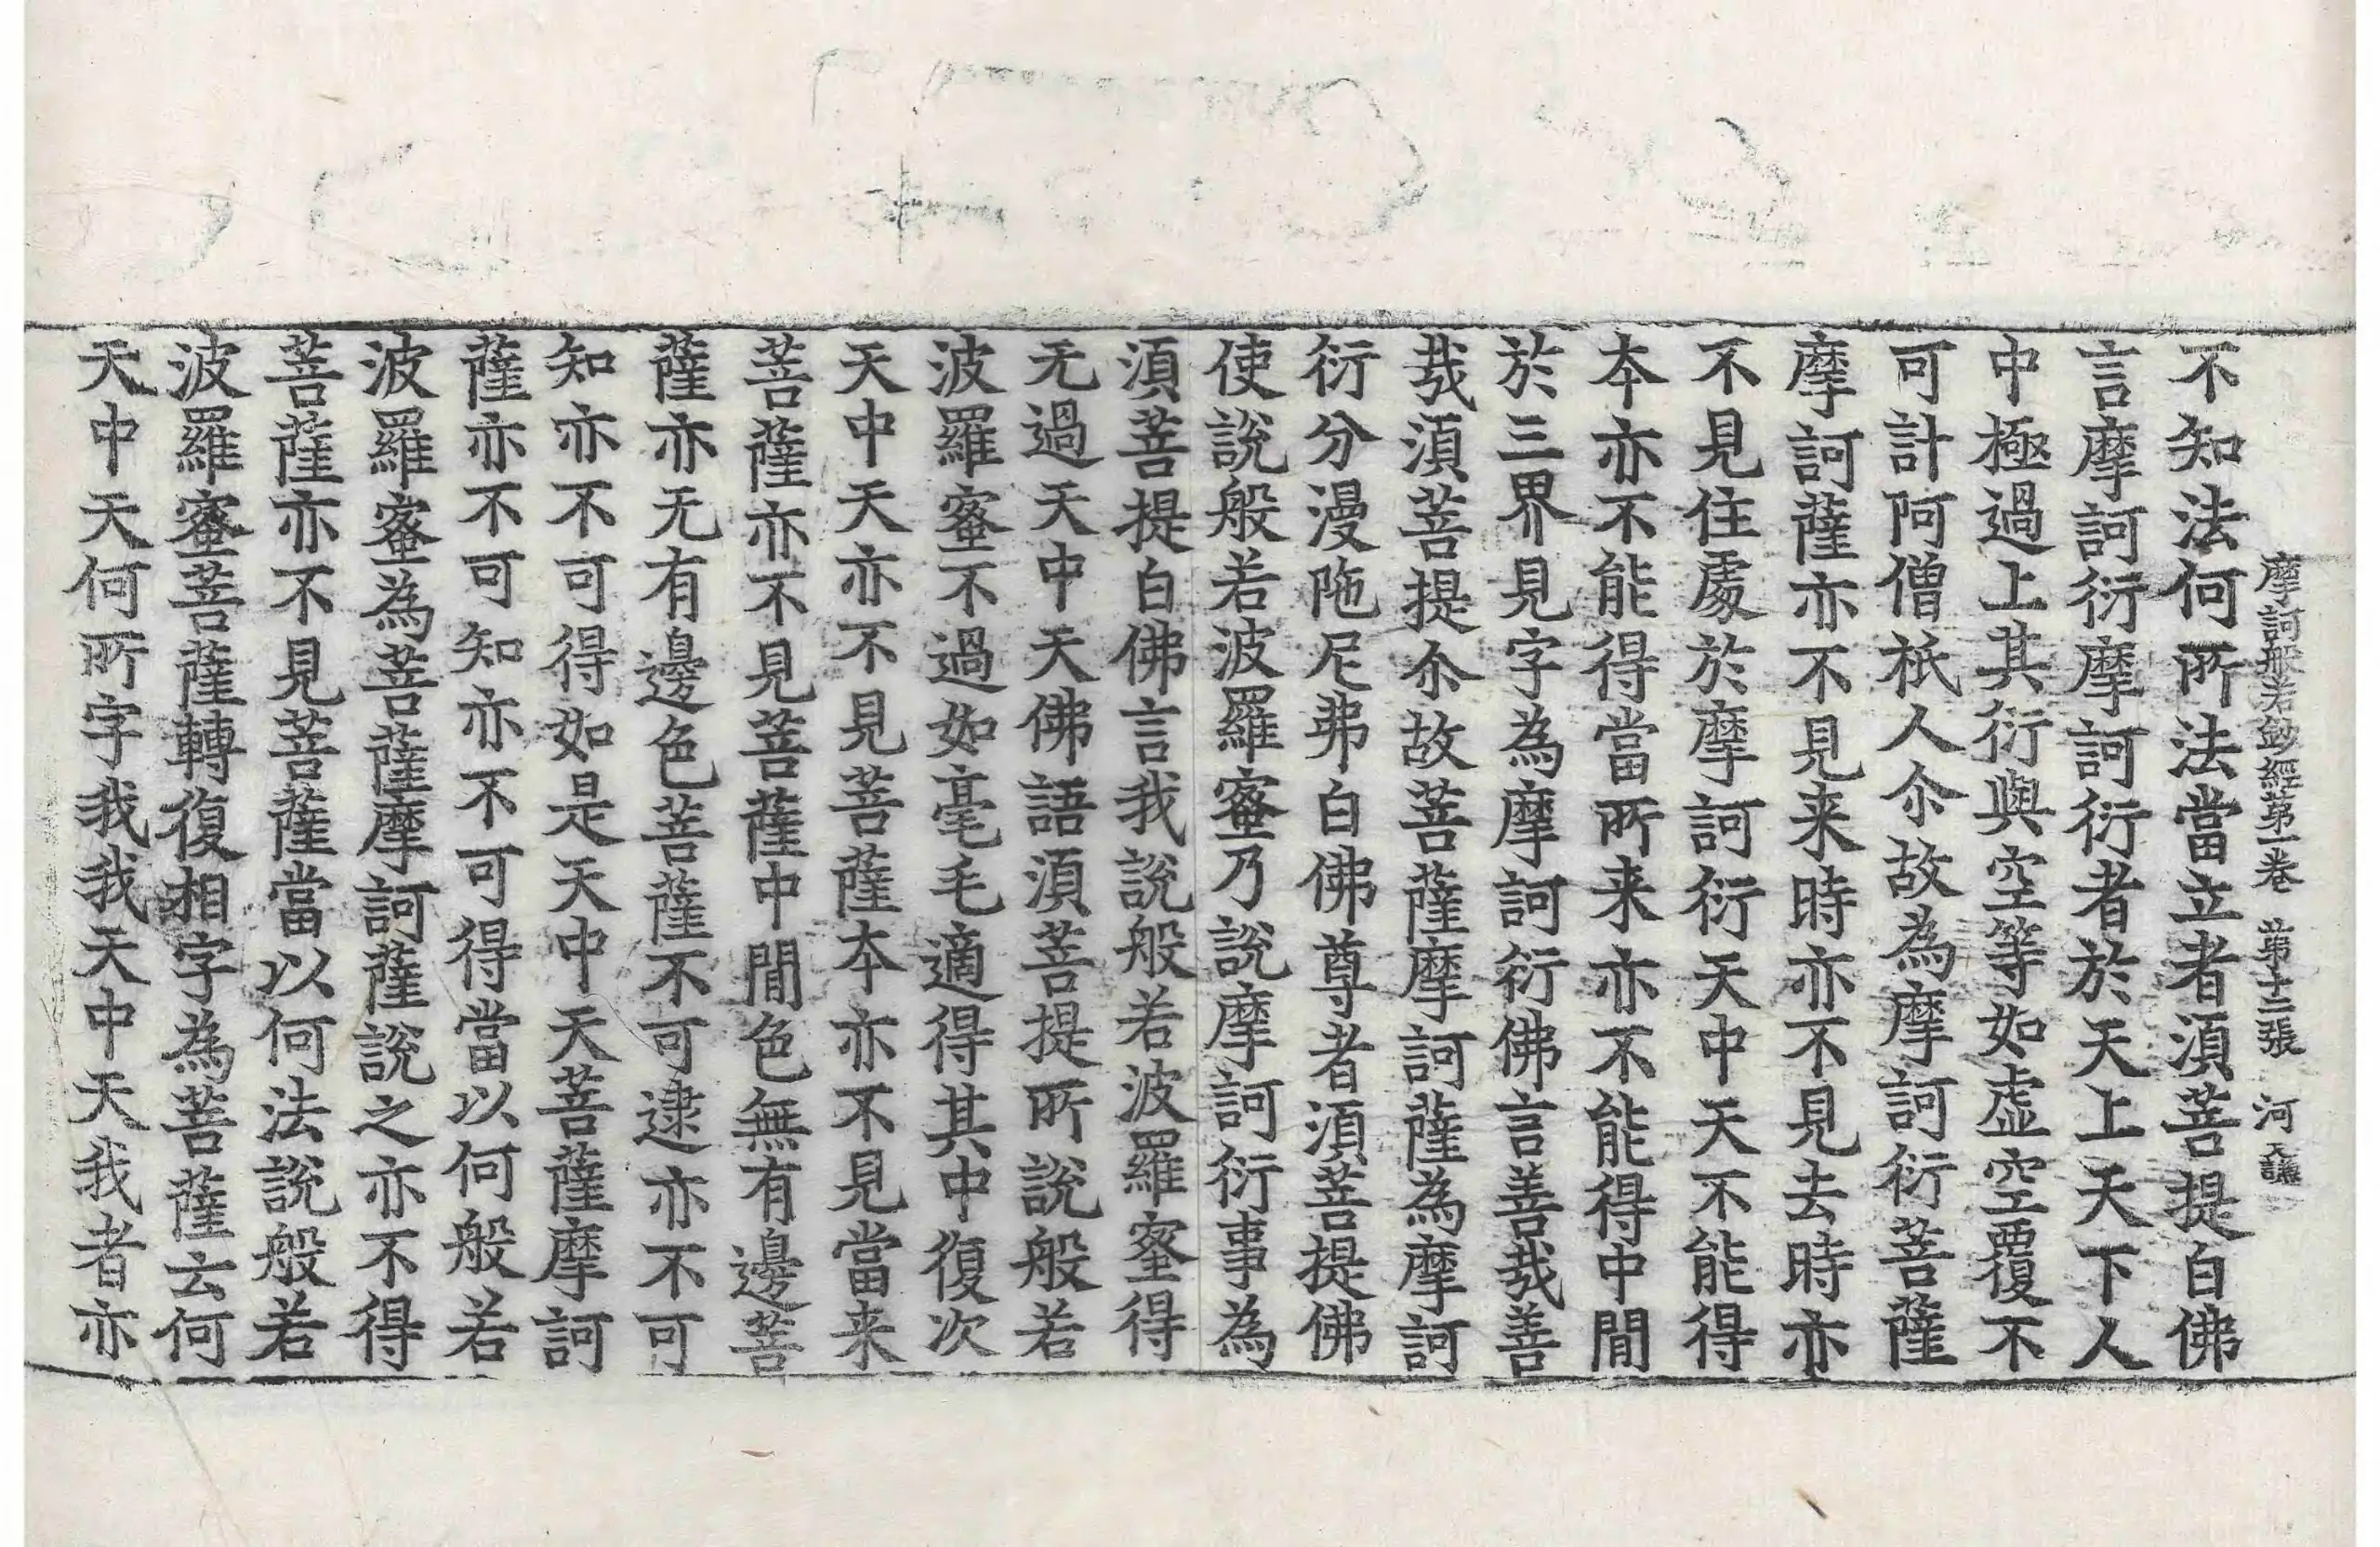 摩訶般若鈔經第一卷 第十二張 河
不知法何所法當立者湏菩提白佛
言摩訶衍摩訶衍者於天上天下人
中極過上其衍與空等如虛空覆不
可計阿僧祇人尒故為摩訶衍菩薩
摩訶薩亦不見来時亦不見去時亦
不見住處於摩訶衍天中天不能得
夲亦不能得當所来亦不能得中閒
於三界見字為摩訶衍佛言善㢤善
㢤湏菩提尒故菩薩摩訶薩為摩訶
衍分漫陁尼弗白佛尊者湏菩提佛
使說般若波羅蜜乃說摩訶衍事為
湏菩提白佛言我說般若波羅蜜得
无過天中天佛語湏菩提所說般若
波羅蜜不過如毫毛適得其中復次
天中天亦不見菩薩夲亦不見當来
菩薩亦不見菩薩中閒色無有邊菩
薩亦无有邊色菩薩不可逮亦不可
知亦不可得如是天中天菩薩摩訶
薩亦不可知亦不可得當以何般若
波羅蜜為菩薩摩訶薩說之亦不得
菩薩亦不見菩薩當以何法說般若
波羅蜜菩薩轉復相字為菩薩云何
天中天何所字我我天中天我者亦